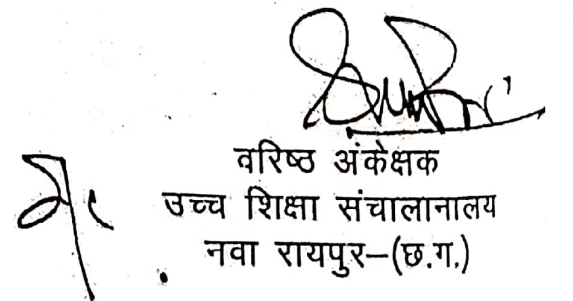 वरिष्ठ अंकेक्षक
उच्च शिक्षा संचालानालय
नवा रायपुर–(छ.ग.)